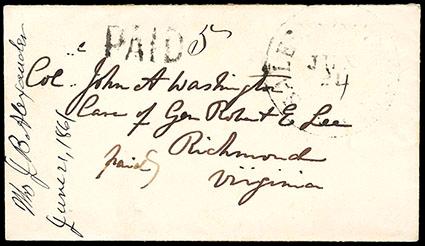 PAID 5
JUN
24
Col. John A Washington
Care of Gen Robert E Lee
Richmond
Virginia
paid 5
Mrs J. B. Alexander
June 21, 1861